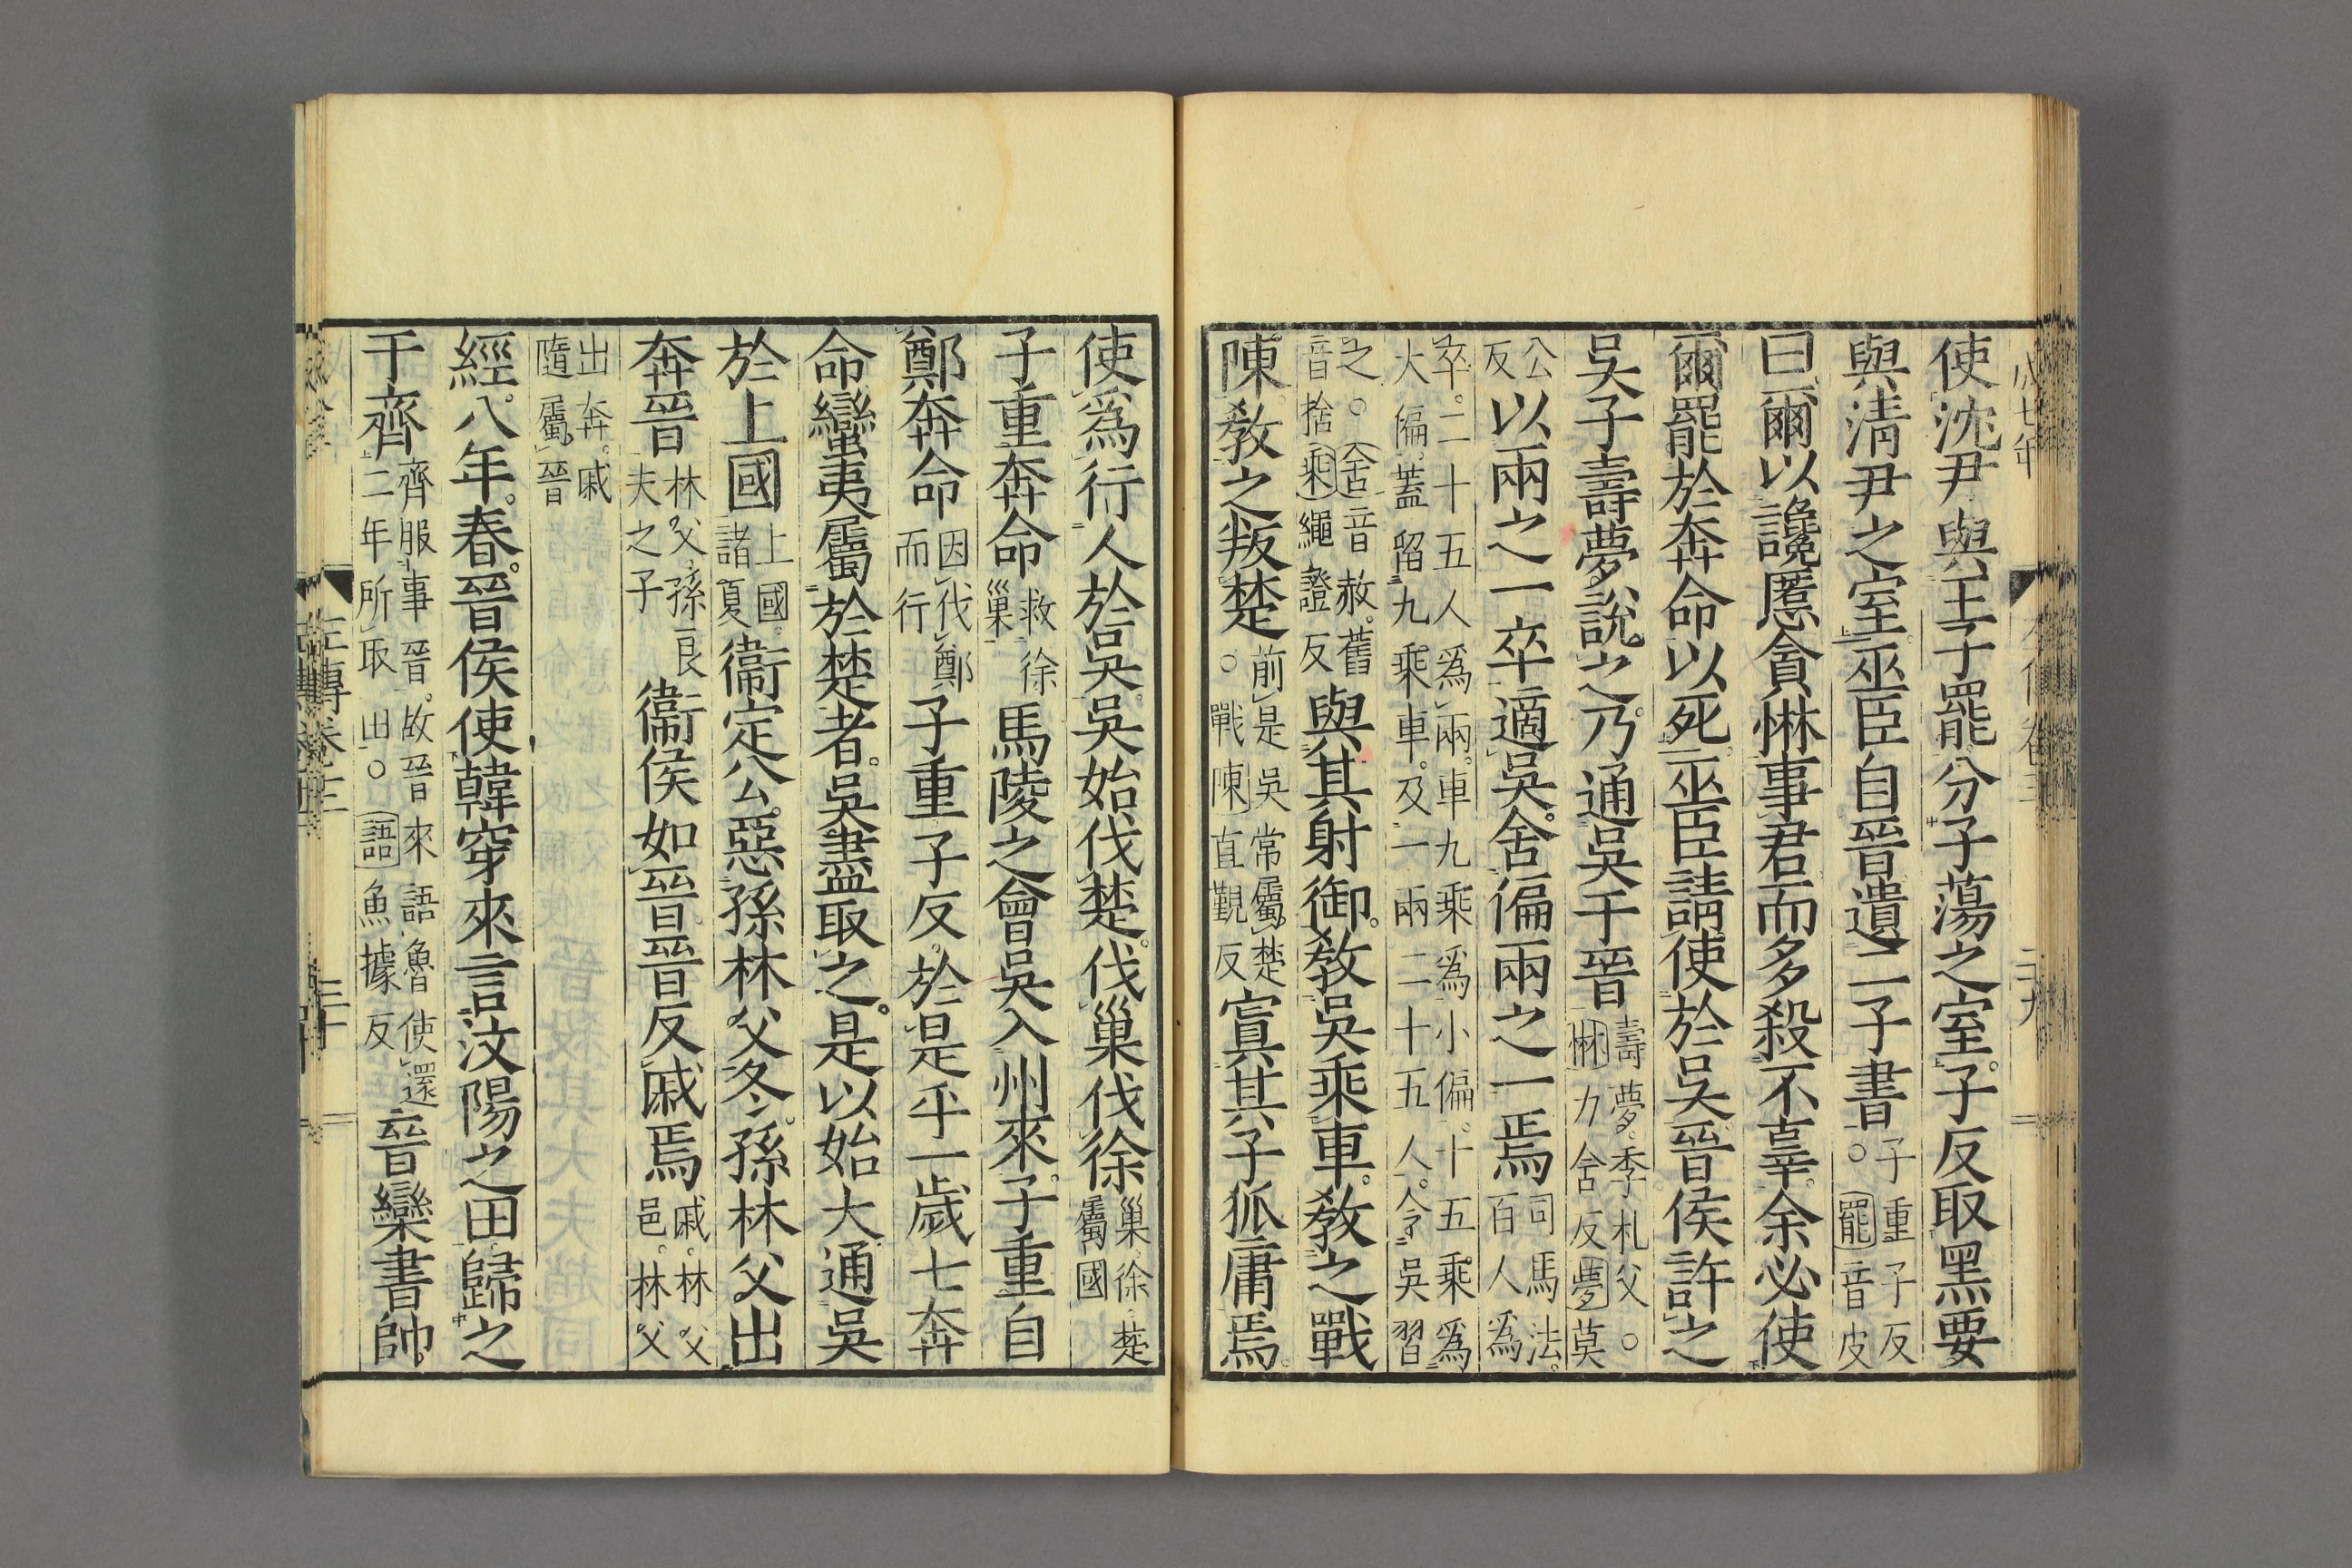 使沈尹與王子罷分子蕩之室子反取黑要
與淸尹之室巫臣自晉遺二子書子重子反○罷音皮
曰爾以讒慝貪惏事君而多殺不辜余必使
爾罷於奔命以死巫臣請使於吳晉侯許之
吳子壽夢說之乃通吳于晉壽夢季札父○惏力舍反夢莫
公反以兩之一卒適吳舍偏兩之一焉司馬法百人爲
卒二十五人爲兩車九乘爲小偏十五乘爲大偏蓋留九乘車及一兩二十五人令吳習
之○舍音赦舊音捨乘繩證反與其射御敎吳乘車敎之戰
陳敎之叛楚前是吳常屬楚○戰陳直覲反寘其子狐庸焉
使爲行人於吳吳始伐楚伐巢伐徐巢徐楚屬國
子重奔命救徐巢馬陵之會吳入州來子重自
鄭奔命因伐鄭而行子重子反於是乎一歲七奔
命蠻夷屬於楚者吳盡取之是以始大通吳
於上國上國諸夏衞定公惡孫林父冬孫林父出
奔晉林父孫良夫之子衞侯如晉晉反戚焉戚林父邑林父
出奔戚隨屬晉
經八年春晉侯使韓穿來言汶陽之田歸之
于齊齊服事晉故晉來語魯使還二年所取田○語魚據反晉欒書帥
左傳卷十三
三十